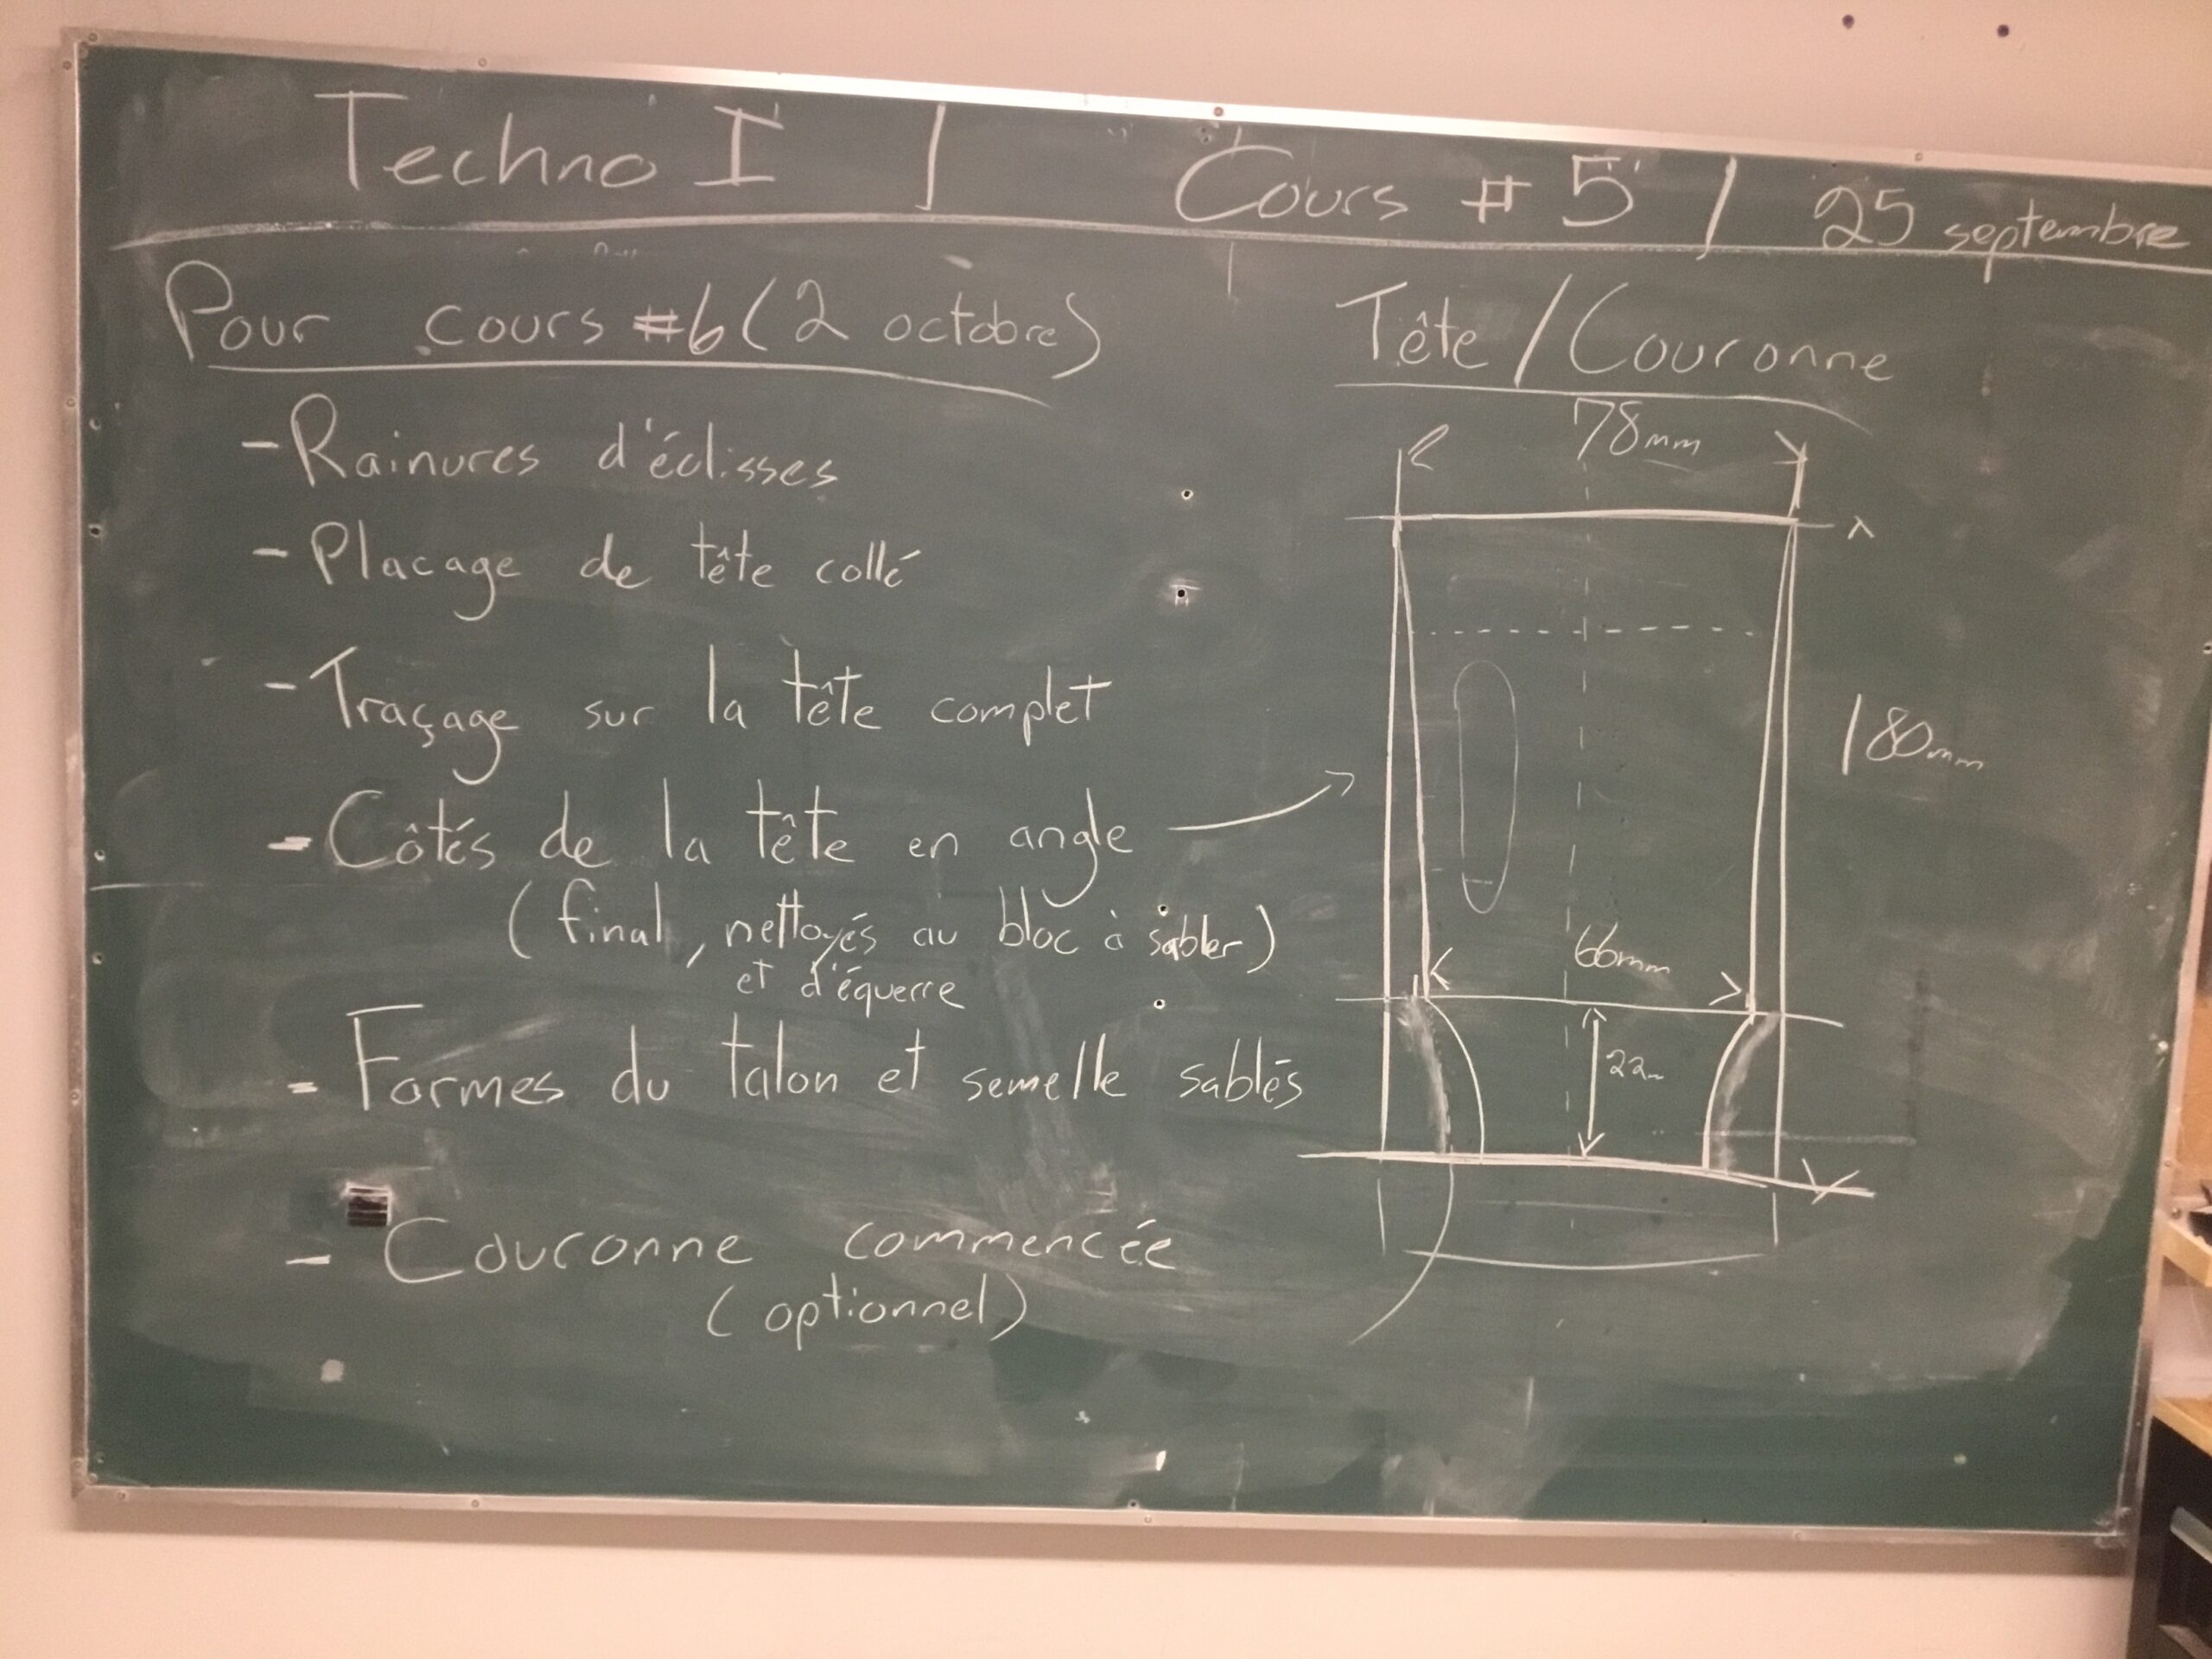 Techno I | Cours #5 | 25 septembre
Pour cours #6 (2 octobre)
- Rainures d'éclisses
- Placage de tête collé
- Traçage sur la tête complet
- Côtés de la tête en angle
(final, nettoyés au bloc à sabler)
et d'équerre
- Formes du talon et semelle sablés
- Couronne commencée
(optionnel)
Tête / Couronne
78mm
180mm
66mm
22m